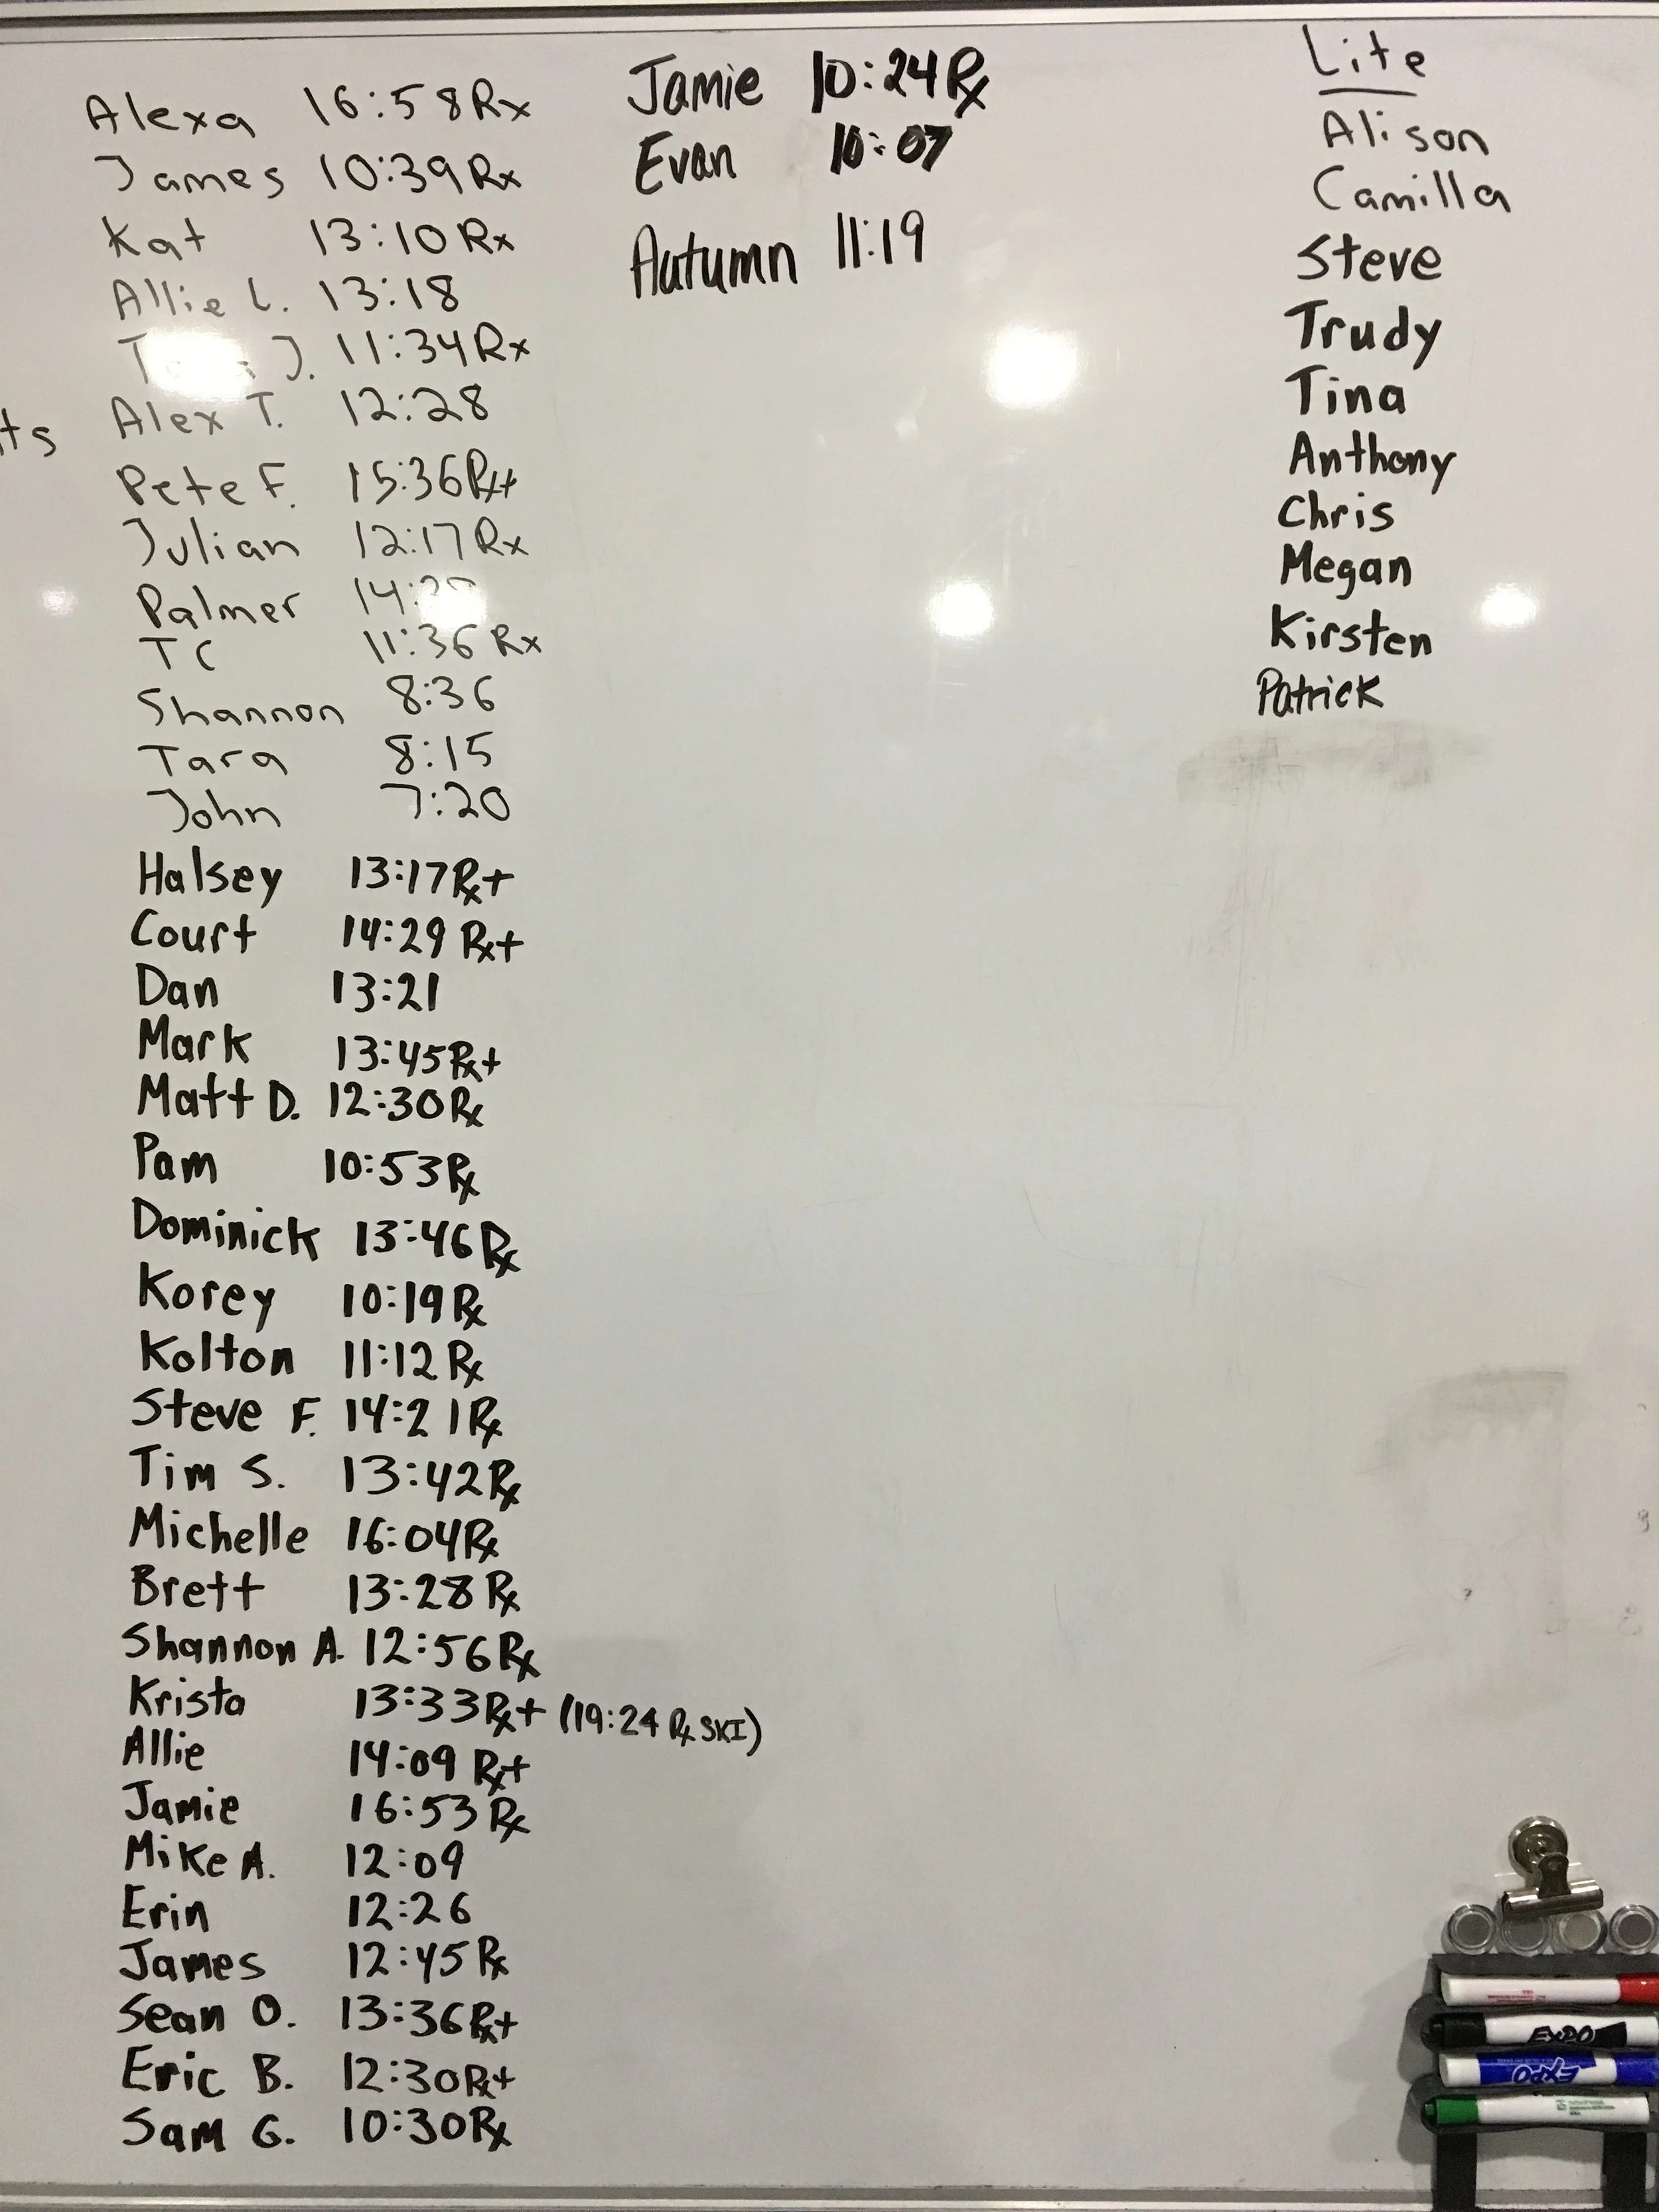 Alexa 16:58 Rx
James 10:39 Rx
Kat 13:10 Rx
Allie L. 13:18
J. 11:34 Rx
Alex T. 12:28
ts
Pete F. 15:36 Rx+
Julian 12:17 Rx
Palmer
TC 11:36 Rx
Shannon 8:36
Tara 8:15
John 7:20
Halsey 13:17 Rx+
Court 14:29 Rx+
Dan 13:21
Mark 13:45 Rx+
Matt D. 12:30 Rx
Pam 10:53 Rx
Dominick 13:46 Rx
Korey 10:19 Rx
Kolton 11:12 Rx
Steve F. 14:21 Rx
Tim S. 13:42 Rx
Michelle 16:04 Rx
Brett 13:28 Rx
Shannon A. 12:56 Rx
Krista 13:33 Rx+ (19:24 Rx SKI)
Allie 14:09 Rx+
Jamie 16:53 Rx
Mike A. 12:09
Erin 12:26
James 12:45 Rx
Sean O. 13:36 Rx+
Eric B. 12:30 Rx+
Sam G. 10:30 Rx
Jamie 10:24 Rx
Evan 10:07
Autumn 11:19
Lite
Alison
Camilla
Steve
Trudy
Tina
Anthony
Chris
Megan
Kirsten
Patrick
EXPO
EXPO